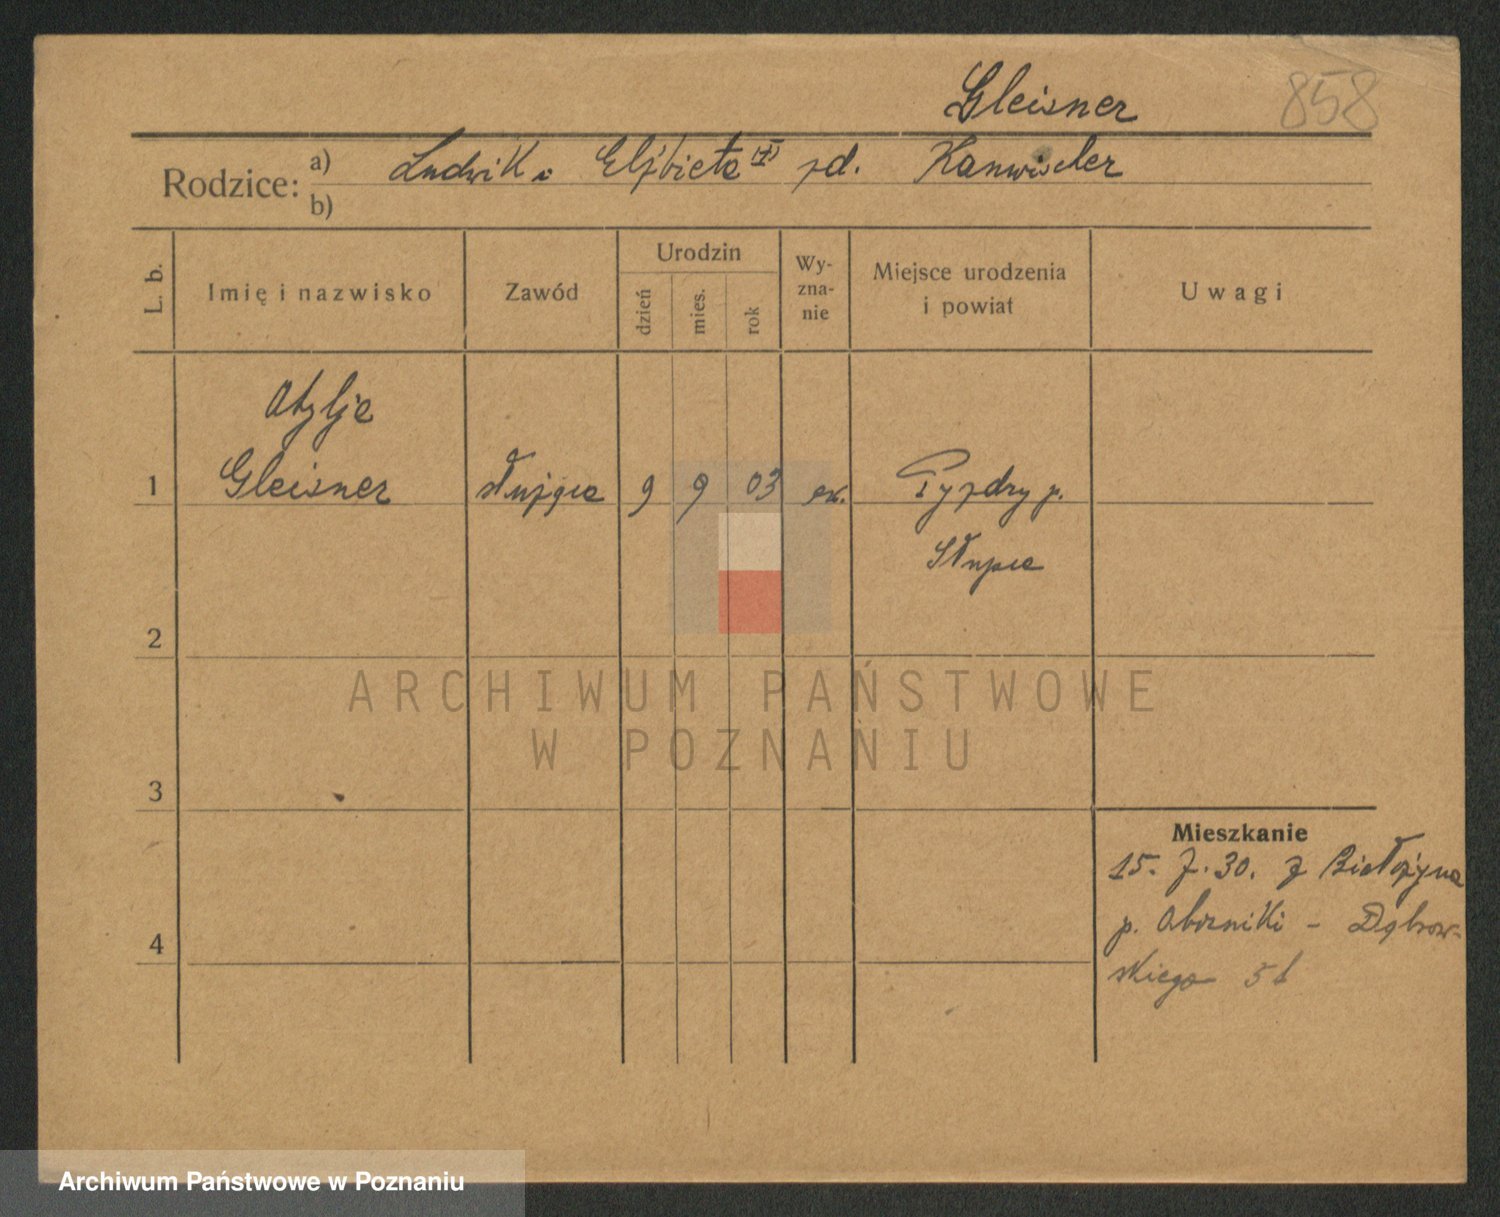 Gleisner 858
Rodzice: a) Ludwik i Elżbieta zd. Kanwischer
b)
L. b.
Imię i nazwisko
Zawód
Urodzin
dzień
mies.
rok
Wy-
zna-
nie
Miejsce urodzenia
i powiat
Uwagi
Otylja
1 Gleisner służąca 9 9 03 ew. Pyzdry p.
Słupca
2
3
4
Mieszkanie
15. 7. 30. z Białężyna
p. Oborniki - Dąbrow-
skiego 51
ARCHIWUM PAŃSTWOWE
W POZNANIU
Archiwum Państwowe w Poznaniu